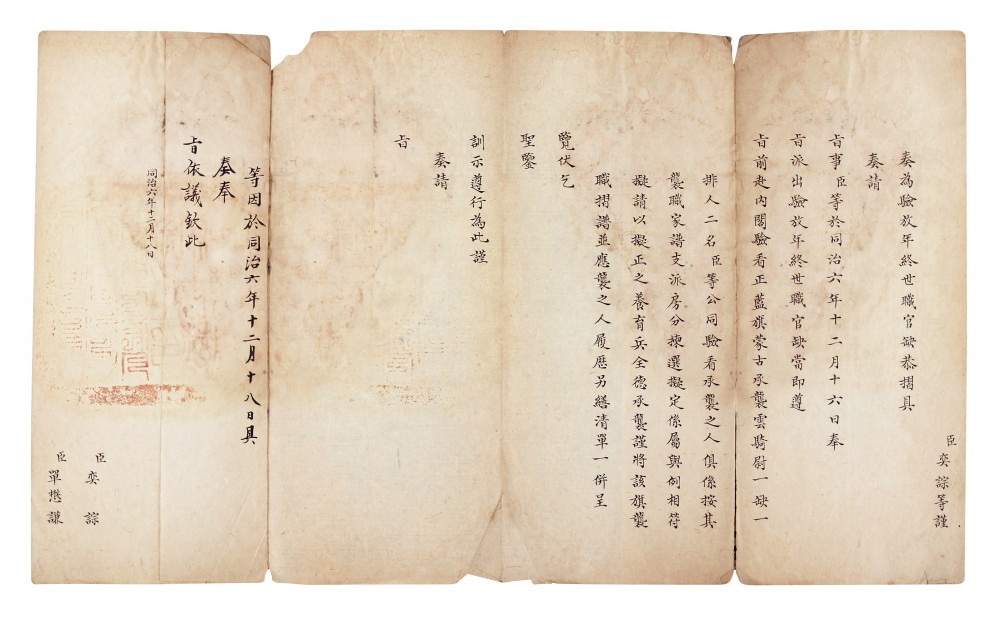 臣奕誴等謹
奏為驗放年終世職官缺恭摺具
奏請
旨事臣等於同治六年十二月十六日奉
旨派出驗放年終世職官缺當即遵
旨前赴內閣驗看正藍旗蒙古承襲雲騎尉一缺一
排人二名臣等公同驗看承襲之人俱係按其
襲職家譜支派房分揀選擬定係屬與例相符
擬請以擬正之養育兵全德承襲謹將該旗襲
職摺譜並應襲之人履歷另繕清單一併呈
覽伏乞
聖鑒
訓示遵行為此謹
奏請
旨
等因於同治六年十二月十八日具
奏奉
旨依議欽此
同治六年十二月十八日
臣奕誴
臣單懋謙